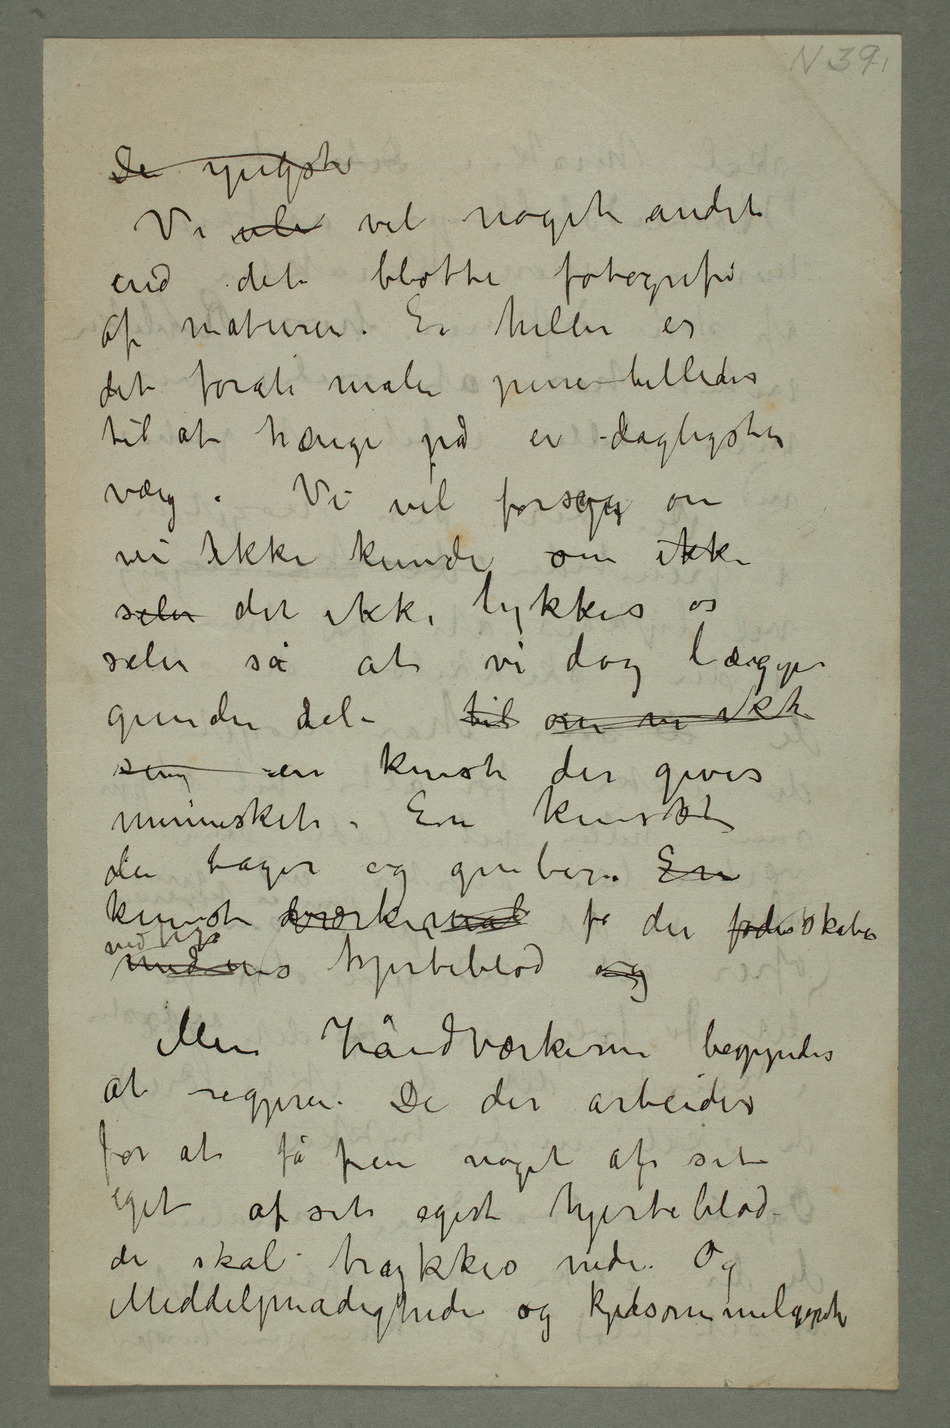 N 39,
De yngste
Vi ule vil noget andet
end det blotte fotografi
af naturen. Ei heller er
det forat male pene billeder
til at hænge på en dagligstu
væg. Vi vil forsøge om
vi ikke kunde om ikke
selv det ikke lykkes os
selv så at vi dog lægger
grunden del til om vi ikke
en kunst der gives
mennesket. En kunst
der tager og griber. En
kunst fø der fødes skabes
med ens hjerteblod og
ved
Men håndværkerne begynder
at regjere. De der arbeider
for at få frem noget af sit
eget af sit eget hjerteblod
de skal trykkes ned. Og
Middelmådigheden og